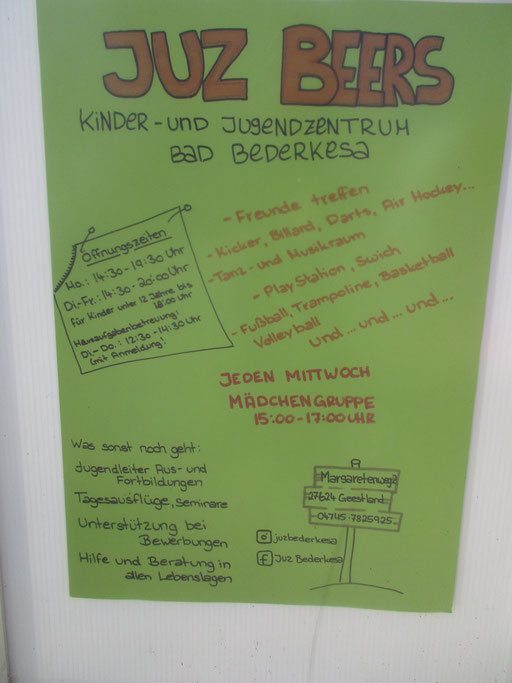 JUZ BEERS
KINDER-UND JUGENDZENTRUM
BAD BEDERKESA
Öffnungszeiten
Mo.: 14:30-19:30 Uhr
Di-Fr.: 14:30-20:00 Uhr
Für Kinder unter 12 Jahre bis
18:00 Uhr
Hausaufgabenbetreuung!
Di,-Do.: 12:30-14:30 Uhr
(mit Anmeldung!
- Freunde treffen
- Kicker, Billard, Darts, Air Hockey...
- Tanz- und Musikraum
- PlayStation, Swich
- Fußball, Trampoline, Basketball
Volleyball
und ... und ... und ...
JEDEN MITTWOCH
MÄDCHENGRUPPE
15:00-17:00 UHR
Was sonst noch geht:
Jugendleiter Aus- und
Fortbildungen
Tagesausflüge, Seminare
Unterstützung bei
Bewerbungen
Hilfe und Beratung in
allen Lebenslagen
Margaretenweg 2
27624 Geestland
04745 7825925
juzbederkesa
Juz Bederkesa